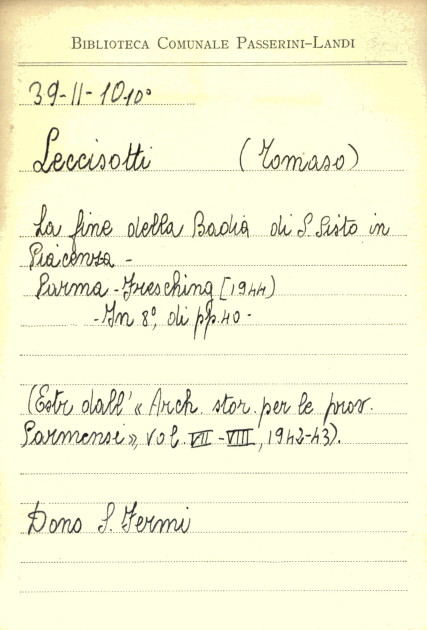 BIBLIOTECA COMUNALE PASSERINI-LANDI
39-II-1010°
Leccisotti (Tomaso)
La fine della Badia di S. Sisto in
Piacenza -
Parma - Fresching [1944)
- In 8°, di pp. 40 -
(Estr dall' « Arch. stor. per le prov.
Parmensi », vol. VII - VIII, 1942-43).
Dono S. Fermi